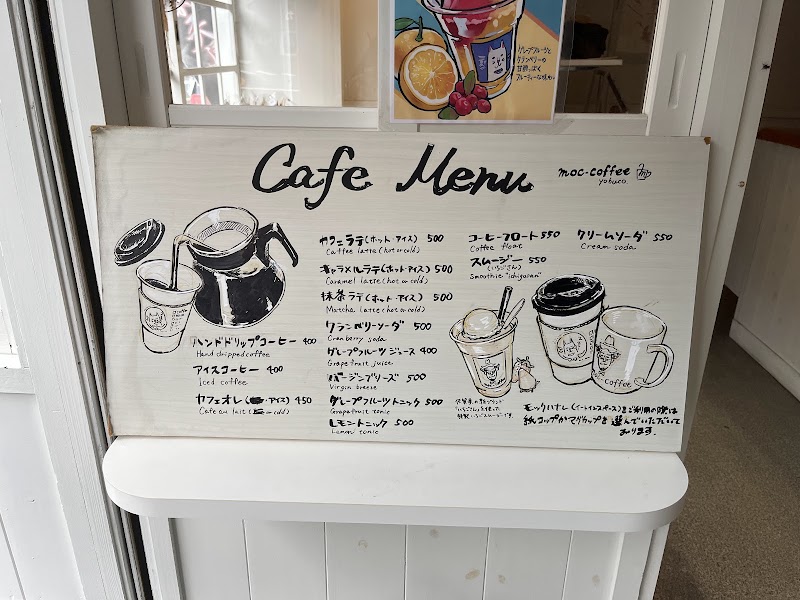 グレープフルーツと
クランベリーの
Cafe Menu
moc-coffee
yobuco
カフェラテ(ホット・アイス) 500
Caffe latte (hot or cold)
キャラメルラテ(ホット・アイス) 500
Caramel latte (hot or cold)
抹茶ラテ(ホット・アイス) 500
Matcha latte (hot or cold)
クランベリーソーダ 500
Cranberry soda
グレープフルーツジュース 400
Grapefruit juice
バージンブリーズ 500
Virgin breeze
グレープフルーツトニック 500
Grapefruit tonic
レモントニック 500
Lemon tonic
コーヒーフロート 550
Coffee float
スムージー 550
(いちごさん)
Smoothie "ichigosan"
クリームソーダ 550
Cream soda
ハンドドリップコーヒー 400
Hand dripped coffee
アイスコーヒー 400
Iced coffee
カフェオレ(アイス) 450
Cafe au lait (or cold)
coffee
モックハナレ(イートインスペース)をご利用の際は
紙コップかマグカップを選んでいただいて
おります。